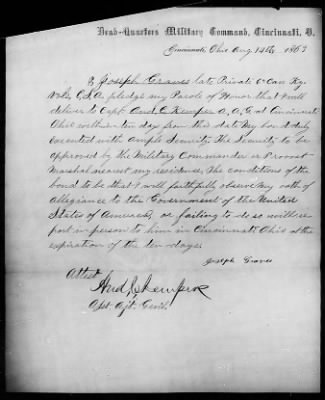 Head-Quarters Military Command, Cincinnati, O.
Cincinnati, Ohio Aug 14th 1863
I Joseph Graves late Private 6" Cav Ky
Vols, C.S.A. pledge my Parole of Honor that I will
deliver to Capt And. C. Kemper A.A.G. at Cincinnati
Ohio within ten days from this date My bond duly
executed with ample Security. The Security to be
approved by the Military Commander or Provost
Marshal nearest my residence. The conditions of the
bond to be that I will faithfully observe My oath of
Allegiance to the Government of the United
States of America, or failing to do so will re
port in person to him in Cincinnati Ohio at the
expiration of the ten days.
Joseph Graves
Attest
And. C. Kemper
Asst. Adjt. Genl.